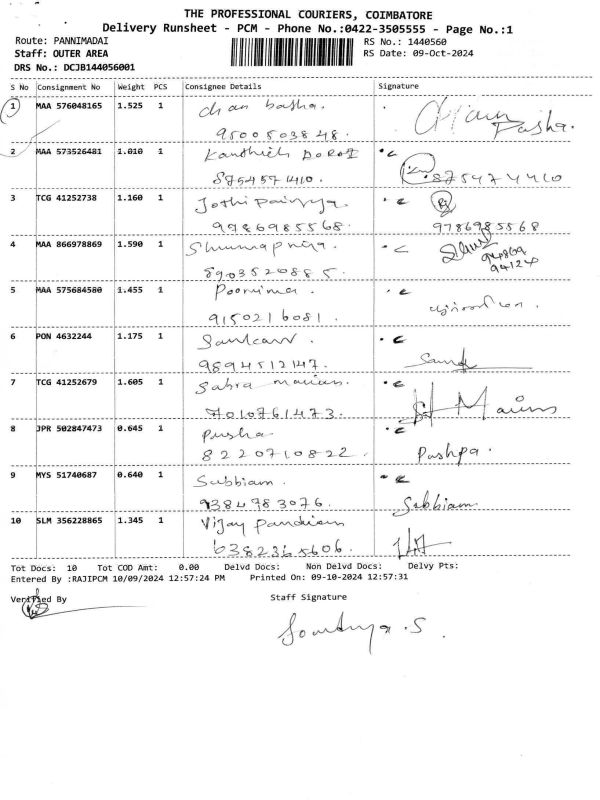 THE PROFESSIONAL COURIERS, COIMBATORE
Delivery Runsheet - PCM - Phone No.:0422-3505555 - Page No.:1
Route: PANNIMADAI RS No.: 1440560
Staff: OUTER AREA RS Date: 09-Oct-2024
DRS No.: DCJB144056001
S No Consignment No Weight PCS Consignee Details Signature
1 MAA 576048165 1.525 1 chan basha.
9500503848. Pasha.
2 MAA 573526481 1.010 1
8754571410. 8754574410
3 TCG 41252738 1.160 1 Jothi
9786985568. 9786985568
4 MAA 866978869 1.590 1
8903520885. 94869
94124
5 MAA 575684580 1.455 1 Poornima.
9150216081.
6 PON 4632244 1.175 1
9894512147.
7 TCG 41252679 1.605 1 Sabra
7010761473.
8 JPR 502847473 0.645 1 Pusha
8220710822. Pushpa.
9 MYS 51740687 0.640 1 Subbiam.
9384783076. Subbiam.
10 SLM 356228865 1.345 1 Vijay Pandian
6382365606.
Tot Docs: 10 Tot COD Amt: 0.00 Delvd Docs: Non Delvd Docs: Delvy Pts:
Entered By :RAJIPCM 10/09/2024 12:57:24 PM Printed On: 09-10-2024 12:57:31
Verified By Staff Signature